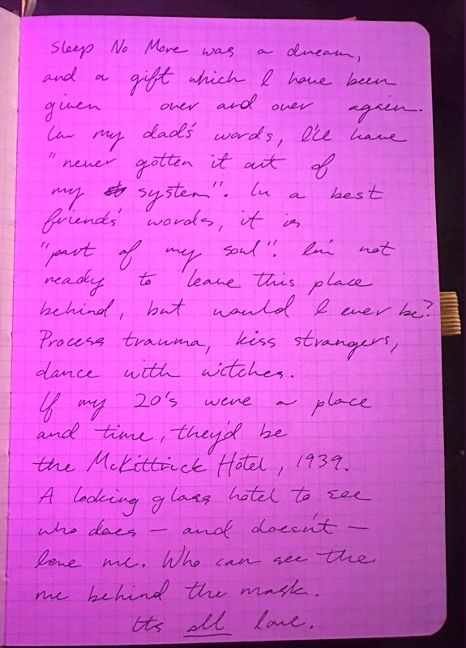 Sleep No More was a dream,
and a gift which I have been
given over and over again.
In my dad's words, I'll have
"never gotten it out of
my system". In a best
friend's words, it is
"part of my soul". I'm not
ready to leave this place
behind, but would I ever be?
Process trauma, kiss strangers,
dance with witches.
If my 20's were a place
and time, they'd be
the McKittrick Hotel, 1939.
A looking glass hotel to see
who does — and doesn't —
love me. Who can see the
me behind the mask.
Its all love.